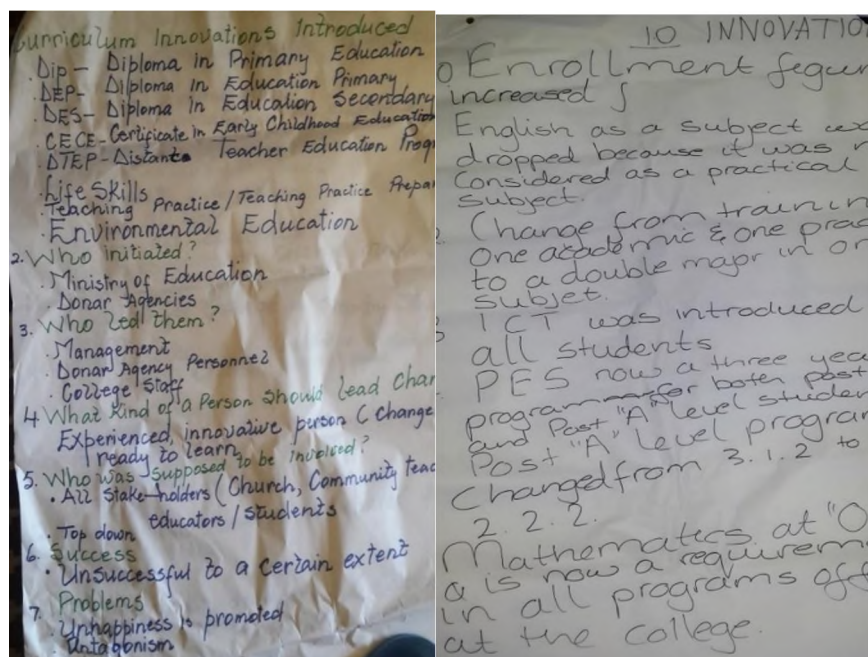 Curriculum Innovations Introduced
. Dip - Diploma in Primary Education
. DEP - Diploma in Education Primary
. DES - Diploma in Education Secondary
. CECE - Certificate in Early Childhood Education
. DTEP - Distant Teacher Education Prog
. Life Skills
. Teaching Practice / Teaching Practice Prepar
. Environmental Education
2. Who initiated?
. Ministry of Education
. Donar Agencies
3. Who Led them?
. Management
. Donar Agency Personnel
. College Staff
4 What kind of a Person should Lead Chan
Experienced, innovative person ( Change
ready to learn
5. Who was supposed to be involved?
. All Stake-holders ( Church, Community teac
educators / students
. Top down
6. Success
. Unsuccessful to a certain extent
7. Problems
. Unhappiness is promoted
. Antagonism
10 INNOVATIO
Enrollment fegur
increased
English as a subject
dropped because it was
considered as a practical
subject.
Change from trainin
one academic & one prac
to a double major in
subjet.
ICT was introduced
all students
PES now a three yea
program for both post
and Post "A" level studen
Post "A" level program
Changed from 3.1.2 to
2.2.2.
Mathematics at "O
is now a requirem
in all programs off
at the college.